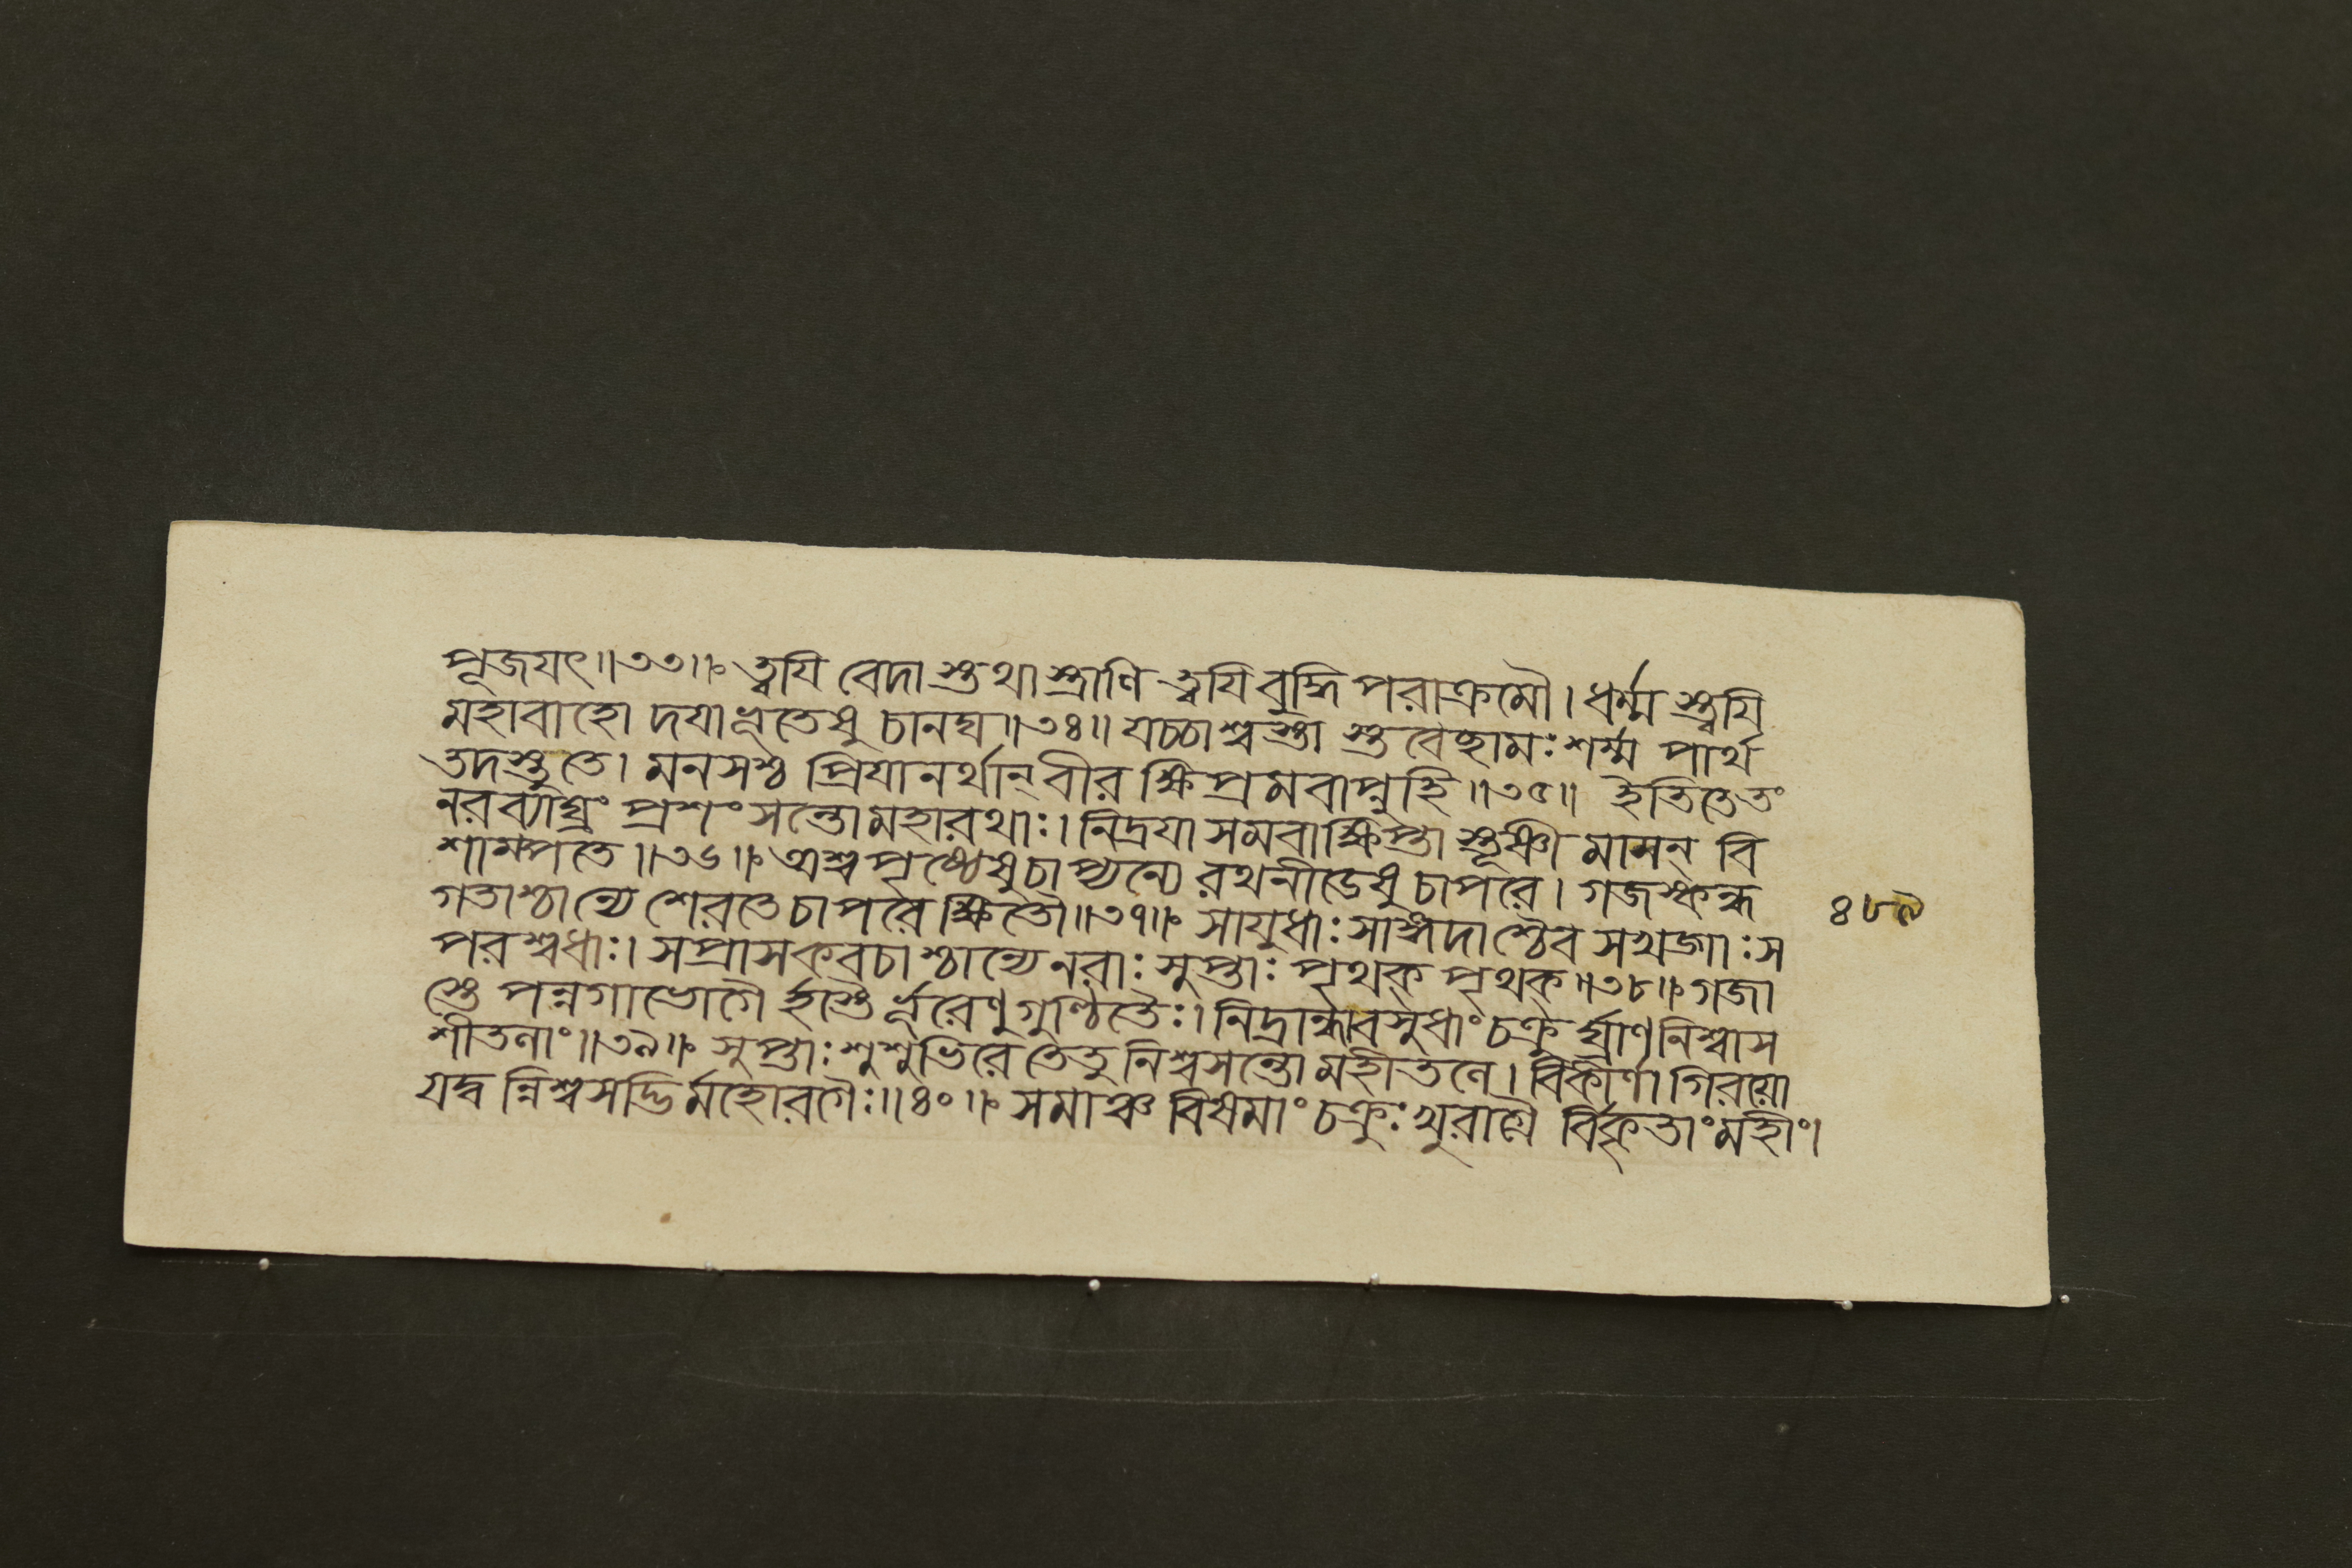 পূজযৎ॥৩৩॥ ত্বযি বেদাস্তথাস্ত্রাণি ত্বযি বুদ্ধিপরাক্রমৌ। ধর্ম্ম স্ত্বযি
মহাবাহো দযা ভূতেষু চানঘ॥৩৪॥ যচ্চাশ্বস্তা স্তবেচ্ছামঃ শর্ম্ম পার্থ
তদস্তুতে। মনসশ্চ প্রিযানর্থান্ বীর ক্ষিপ্রমবাপ্নুহি॥৩৫॥ ইতি তে তং
নরব্যাঘ্রং প্রশংসন্তো মহারথাঃ। নিদ্রযা সমবাক্ষিপ্তা স্তূষ্ণী মাসন্ বি
শাম্পতে॥৩৬॥ অশ্বপৃষ্ঠেষু চাপ্যন্যে রথনীডেষু চাপরে। গজস্কন্ধ
গতাশ্চান্যে শেরতে চাপরে ক্ষিতৌ॥৩৭॥ সাযুধাঃ সাঙ্গদাশ্চৈব সখড্গাঃ স
পরশ্বধাঃ। সপ্রাসকবচাশ্চান্যে নরাঃ সুপ্তাঃ পৃথক্ পৃথক্॥৩৮॥ গজা
স্তে পন্নগাভোগৈ র্হস্তৈ র্ভূরেণুগুণ্ঠিতৈঃ। নিদ্রান্ধা বসুধাং চক্রু র্ঘ্রাণনিশ্বাস
শীতলাং॥৩৯॥ সুপ্তাঃ শুশুভিরে তে তু নিশ্বসন্তো মহীতলে। বিকীর্ণা গিরযো
যদ্ব ন্নিশ্বসদ্ভির্মহোরগৈঃ॥৪০॥ সমাঞ্চ বিষমাং চক্রুঃ খুরাগ্রৈ র্বিকৃতাং মহীং।
৪৮৯